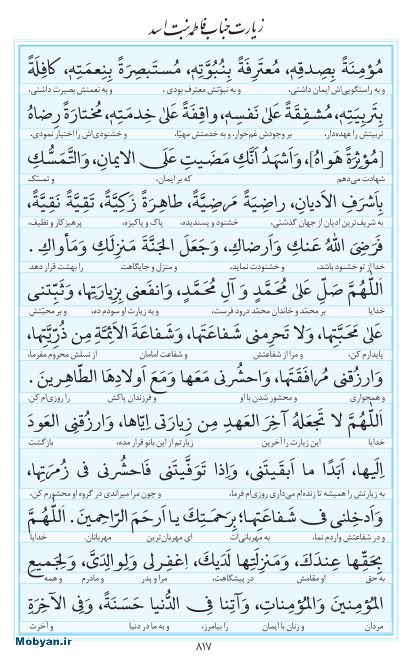 زیارت جناب فاطمه بنت اسد
مُؤمِنَةً بِصِدقِهِ، مُعتَرِفَةً بِنُبُوَّتِهِ، مُستَبصِرَةً بِنِعمَتِهِ، كافِلَةً
و به راستگویی‌اش ایمان داشتی، و به نبوّتش معترف بودی، و به نعمتش بصیرت داشتی،
بِتَربِيَتِهِ، مُشفِقَةً عَلىٰ نَفسِهِ، واقِفَةً عَلىٰ خِدمَتِهِ، مُختارَةً رِضاهُ
تربیتش را عهده‌دار، بر وجودش غم‌خوار، و به خدمتش مهیّا، و خشنودی‌اش را اختیار نمودی،
[مُؤثِرَةً هَواهُ]، وَاَشهَدُ اَنَّكِ مَضَيتِ عَلَى الايمانِ، وَالتَّمَسُّكِ
شهادت می‌دهم که بر ایمان، و تمسّک
بِاَشرَفِ الاَديانِ، راضِيَةً مَرضِيَّةً، طاهِرَةً زَكِيَّةً، تَقِيَّةً نَقِيَّةً،
به شریف‌ترین ادیان از جهان گذشتی، خشنود و پسندیده، پاک و پاکیزه، پرهیزکار و نظیف،
فَرَضِىَ اللّٰهُ عَنكِ وَاَرضاكِ، وَجَعَلَ الجَنَّةَ مَنزِلَكِ وَمَأواكِ.
خدا از تو خشنود باشد، و خشنودت نماید، و منزل و جایگاهت را بهشت قرار دهد.
اَللّٰهُمَّ صَلِّ عَلىٰ مُحَمَّدٍ وَ آلِ مُحَمَّدٍ، وَانفَعنى بِزِيارَتِها، وَثَبِّتنى
خدایا بر محمّد و خاندان محمّد درود فرست، و به زیارت او سودم ده، و بر محبّتش
عَلىٰ مَحَبَّتِها، وَلا تَحرِمنى شَفاعَتَها، وَشَفاعَةَ الاَئِمَّةِ مِن ذُرِّيَّتِها،
پایدارم کن، و مرا از شفاعتش و شفاعت امامان از نسلش محروم مفرما،
وَارزُقنى مُرافَقَتَها، وَاحشُرنى مَعَها وَمَعَ اَولادِهَا الطّاهِرينَ.
و همجواری و محشور شدن با او و فرزندان پاکش را روزی‌ام کن.
اَللّٰهُمَّ لا تَجعَلهُ آخِرَ العَهدِ مِن زِيارَتى اِيّاها، وَارزُقنِى العَودَ
خدایا این زیارت را آخرین زیارتم از این بانو قرار مده، بازگشت
اِلَيها، اَبَدًا ما اَبقَيتَنى، وَاِذا تَوَفَّيتَنى فَاحشُرنى فى زُمرَتِها،
به زیارتش را همیشه تا زنده‌ام می‌داری روزی‌ام فرما، و چون مرا میراندی در گروه او محشورم کن،
وَاَدخِلنى فى شَفاعَتِها؛ بِرَحمَتِكَ يا اَرحَمَ الرّاحِمينَ. اَللّٰهُمَّ
و در شفاعتش واردم نما، به مهربانی‌ات ای مهربان‌ترین مهربانان. خدایا
بِحَقِّها عِندَكَ، وَمَنزِلَتِها لَدَيكَ، اِغفِرلى وَلِوالِدَىَّ، وَلِجَميعِ
به حق او و مقامش در پیشگاهت، مرا و پدر و مادرم و همه
المُؤمِنينَ وَالمُؤمِناتِ، وَآتِنا فِى الدُّنيا حَسَنَةً، وَفِى الآخِرَةِ
مردان و زنان با ایمان را بیامرز، و به ما در دنیا و آخرت
٨١٧
Mobyan.ir